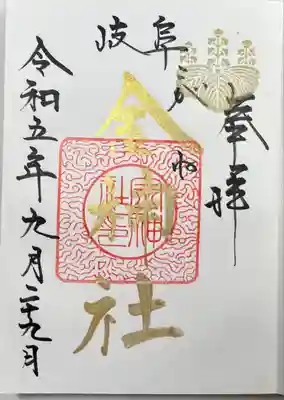 奉拝
岐阜こがね
金神社
令和五年九月二十九日